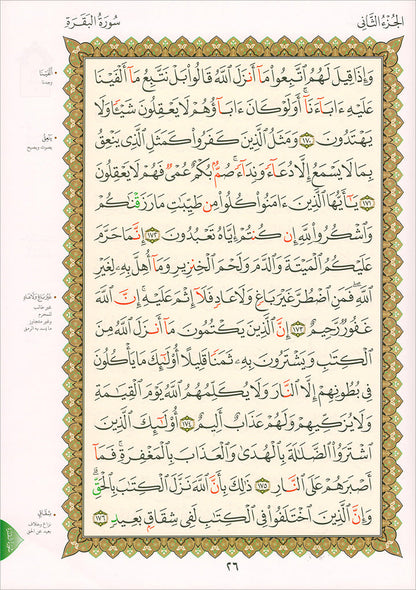 الجُزْءُ الثَّانِي
سُورَةُ البَقَرَةِ
وَإِذَا قِيلَ لَهُمُ ٱتَّبِعُوا۟ مَآ أَنزَلَ ٱللَّهُ قَالُوا۟ بَلْ نَتَّبِعُ مَآ أَلْفَيْنَا
عَلَيْهِ ءَابَآءَنَآ أَوَلَوْ كَانَ ءَابَآؤُهُمْ لَا يَعْقِلُونَ شَيْـًٔا وَلَا
يَهْتَدُونَ ١٧٠ وَمَثَلُ ٱلَّذِينَ كَفَرُوا۟ كَمَثَلِ ٱلَّذِى يَنْعِقُ
بِمَا لَا يَسْمَعُ إِلَّا دُعَآءً وَنِدَآءً صُمٌّۢ بُكْمٌ عُمْىٌ فَهُمْ لَا يَعْقِلُونَ
١٧١ يَـٰٓأَيُّهَا ٱلَّذِينَ ءَامَنُوا۟ كُلُوا۟ مِن طَيِّبَـٰتِ مَا رَزَقْنَـٰكُمْ
وَٱشْكُرُوا۟ لِلَّهِ إِن كُنتُمْ إِيَّاهُ تَعْبُدُونَ ١٧٢ إِنَّمَا حَرَّمَ
عَلَيْكُمُ ٱلْمَيْتَةَ وَٱلدَّمَ وَلَحْمَ ٱلْخِنزِيرِ وَمَآ أُهِلَّ بِهِۦ لِغَيْرِ
ٱللَّهِ ۖ فَمَنِ ٱضْطُرَّ غَيْرَ بَاغٍ وَلَا عَادٍ فَلَآ إِثْمَ عَلَيْهِ ۚ إِنَّ ٱللَّهَ
غَفُورٌ رَّحِيمٌ ١٧٣ إِنَّ ٱلَّذِينَ يَكْتُمُونَ مَآ أَنزَلَ ٱللَّهُ مِنَ
ٱلْكِتَـٰبِ وَيَشْتَرُونَ بِهِۦ ثَمَنًا قَلِيلًا أُو۟لَـٰٓئِكَ مَا يَأْكُلُونَ
فِى بُطُونِهِمْ إِلَّا ٱلنَّارَ وَلَا يُكَلِّمُهُمُ ٱللَّهُ يَوْمَ ٱلْقِيَـٰمَةِ
وَلَا يُزَكِّيهِمْ وَلَهُمْ عَذَابٌ أَلِيمٌ ١٧٤ أُو۟لَـٰٓئِكَ ٱلَّذِينَ
ٱشْتَرَوُا۟ ٱلضَّلَـٰلَةَ بِٱلْهُدَىٰ وَٱلْعَذَابَ بِٱلْمَغْفِرَةِ ۚ فَمَآ
أَصْبَرَهُمْ عَلَى ٱلنَّارِ ١٧٥ ذَٰلِكَ بِأَنَّ ٱللَّهَ نَزَّلَ ٱلْكِتَـٰبَ بِٱلْحَقِّ ۗ
وَإِنَّ ٱلَّذِينَ ٱخْتَلَفُوا۟ فِى ٱلْكِتَـٰبِ لَفِى شِقَاقٍۭ بَعِيدٍ ١٧٦
• أَلْفَيْنَا
وجدنا
• يَنْعِقُ
يصوت ويصيح
• غَيْرَ بَاغٍ وَلَا عَادٍ
غير طالب
للمحرم
وغير متجاوز
ما يسد به الرمق
• شِقَاقٍ
نزاع وخلاف
بعيد عن الحق
٢٦